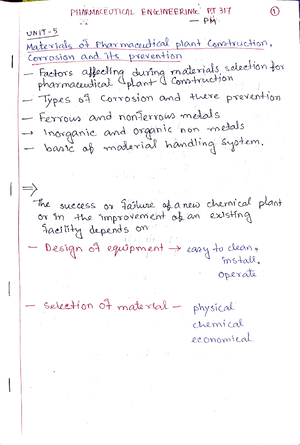 PHARMACEUTICAL ENGINEERING PT 317
1
— PM
UNIT-5
Materials of Pharmaceutical plant Construction,
Corrosion and its prevention
— Factors affecting during materials selection for
pharmaceutical plant Construction
— Types of Corrosion and there prevention
— Ferrous and nonferrous metals
→ Inorganic and organic non metals
— basic of material handling System.
⇒
The success or failure of a new chemical plant
or in the improvement of an existing
facility depends on
— Design of equipment → easy to clean,
install,
operate
— Selection of material — physical
chemical
economical